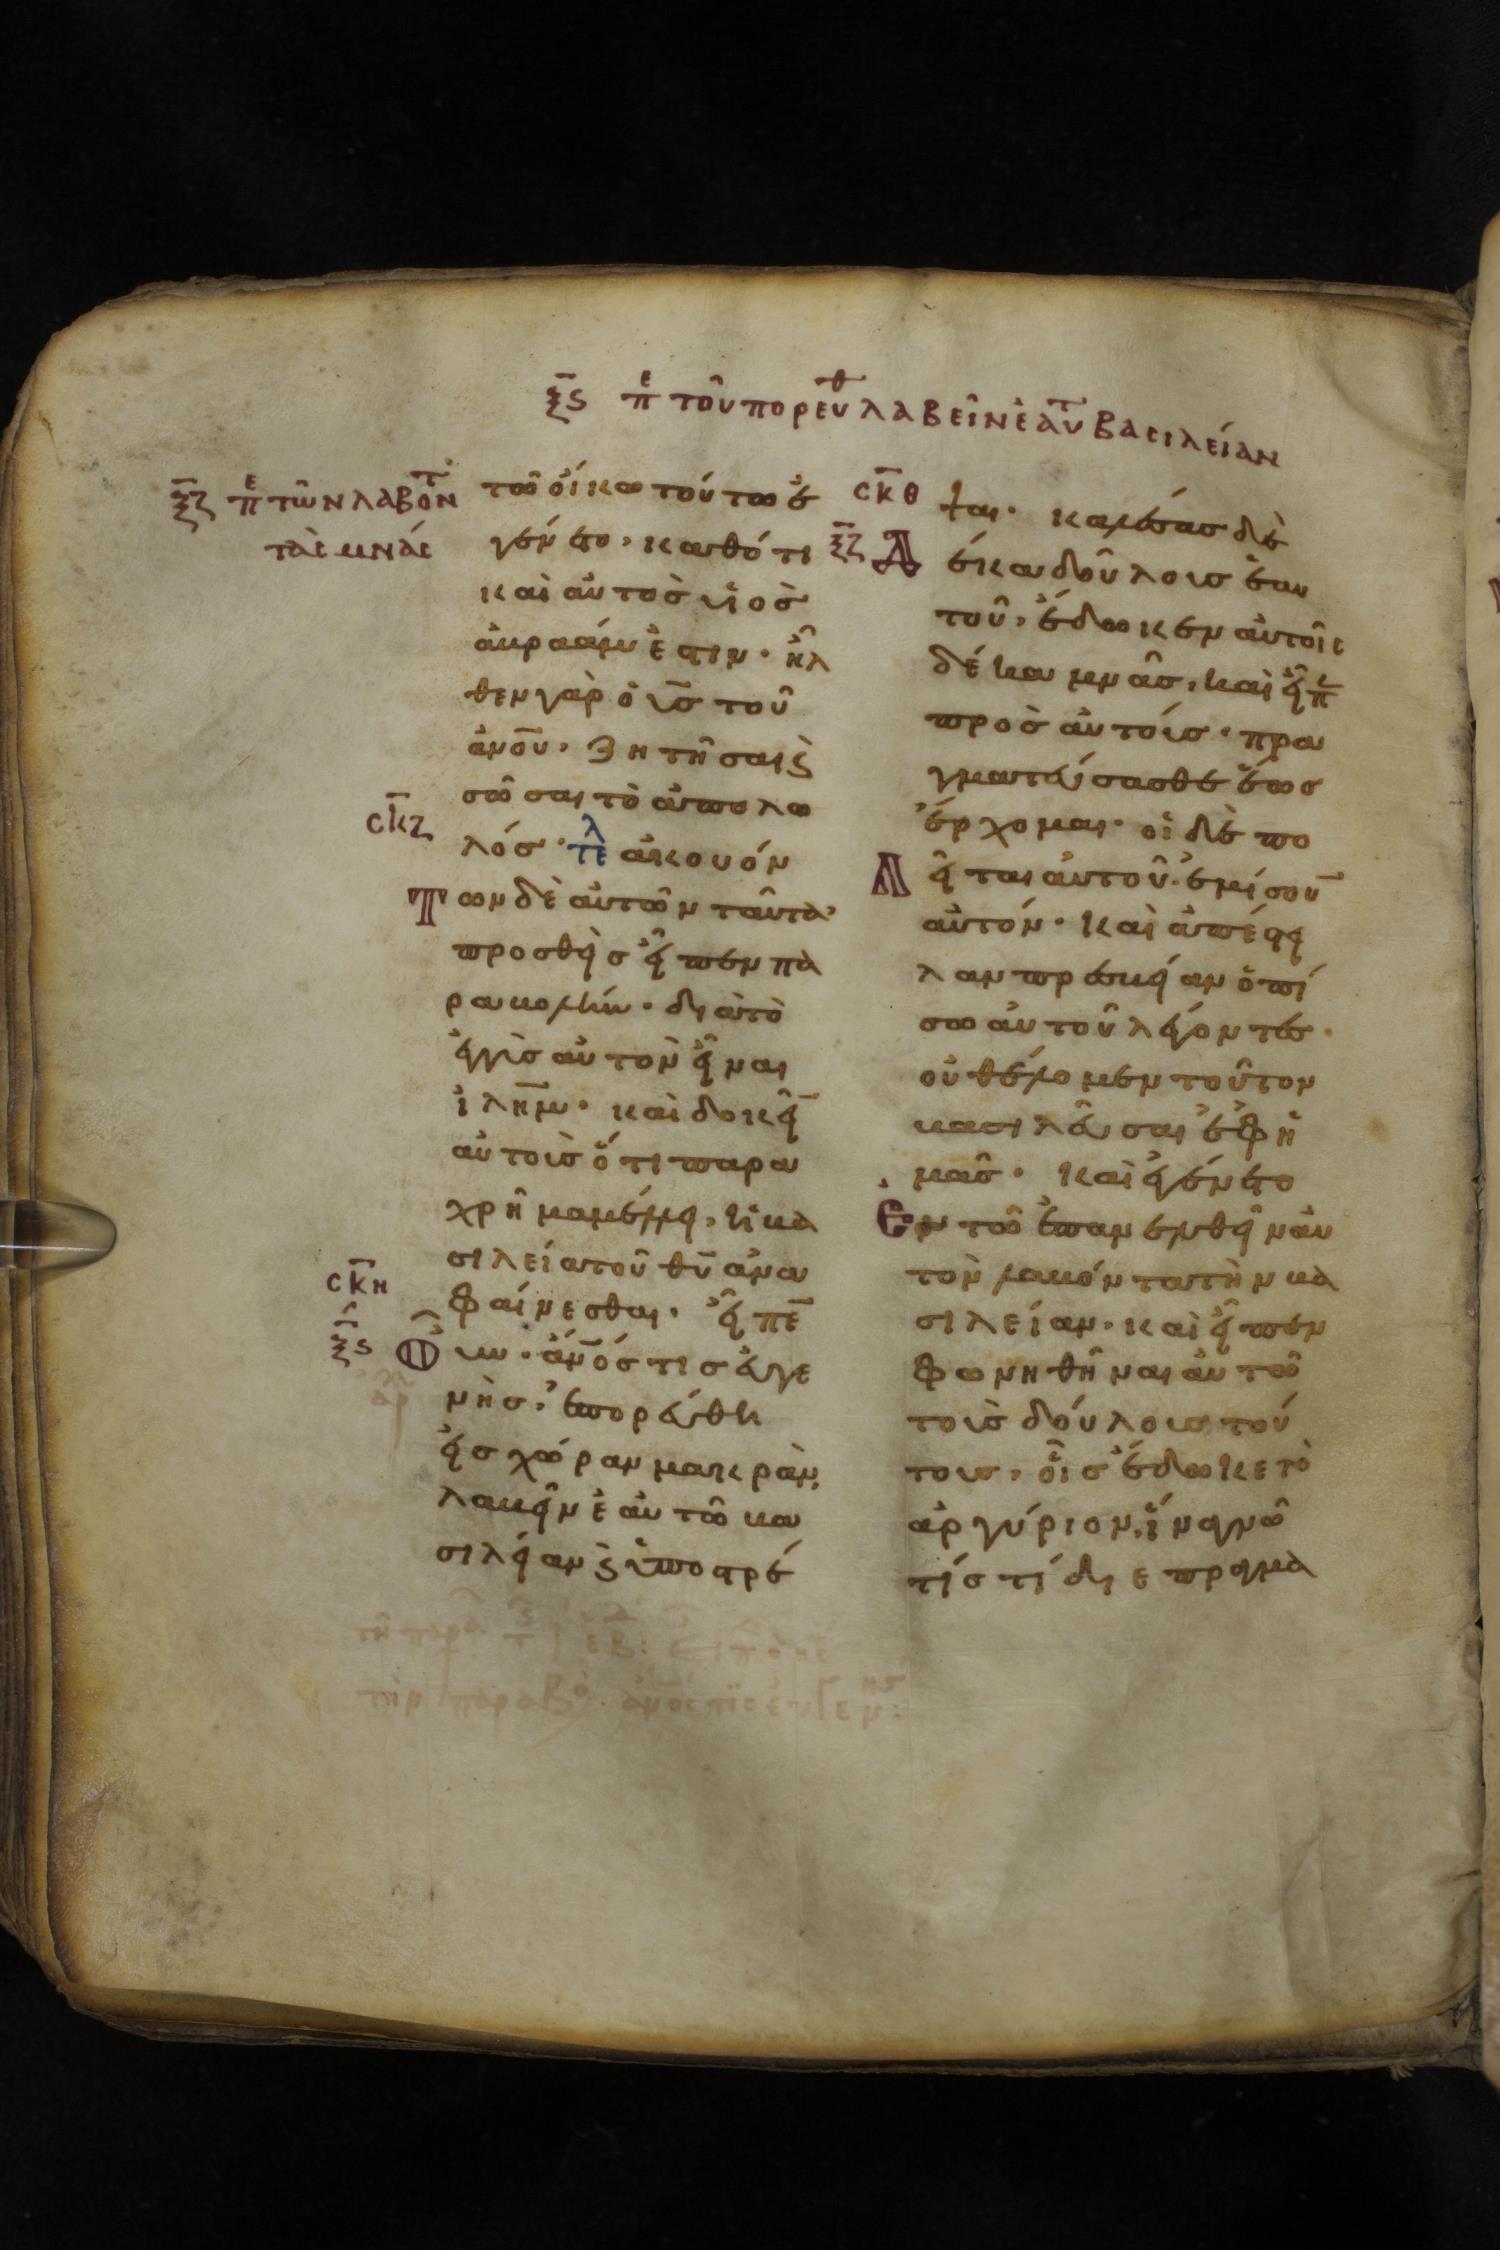 ξ̅ϛ πε τοῦ πορευθ λαβεῖν ἑαυτ βασιλείαν
ξ̅ζ πε τῶν λαβόντ
τὰς μνάς
τῶ οἴκω τούτω ἐ
γένετο, καθότι
καὶ αὐτὸσ υἱὸσ
ἀβραάμ ἐστιν· ἦλ
θεν γὰρ ὁ υ̅σ̅ τοῦ
ἀν̅ου̅, ζητῆσαι ϗ
σῶσαι τὸ ἀπολω
σ̅κ̅ζ
λόσ· τελ ἀκουόν
Των δὲ αὐτῶν ταῦτα,
προσθεὶσ εἶπεν πα
ραβολήν· διὰ τὸ
ἐγγὺσ αὐτὸν εἶναι
ἰλη̅μ· καὶ δοκεῖ̅
αὐτοὺσ ὅτι παρα
χρῆμα μέλλει, ἡ βα
σιλεία τοῦ θ̅υ̅ ἀνα
σ̅κ̅η
φαίνεσθαι· εἶπε̅
ξ̅ϛ Οὖν· ἀν̅όσ τισ εὐγε
νὴσ, ἐπορεύθη
εἰσ χώραν μακρὰν,
λαβεῖν ἑαυτῶ βα
σιλείαν ϗ ὑποστρέ
σ̅κ̅θ
ψαι· καλέσασ δὲ
ξ̅ζ Δέκα δούλουσ ἑαυ
τοῦ, ἔδωκεν αὐτοῖς
δέκα μνᾶσ, καὶ εἶπε
πρὸσ αὐτούσ· πρα
γματεύσασθε ἕωσ
ἔρχομαι· οἱ δὲ πο
Λεῖται αὐτοῦ· ἐμίσου̅
αὐτόν· καὶ ἀπέστει
λαν πρεσβείαν ὀπί
σω αὐτοῦ λέγοντεσ·
οὐ θέλομεν τοῦτον
βασιλεῦσαι ἐφ' ἡ
μᾶσ· καὶ ἐγένετο
Ἐν τῶ ἐπανελθεῖν αὐ
τὸν λαβόντα τὴν βα
σιλείαν· καὶ εἶπεν
φωνηθῆναι αὐτῶ
τοὺσ δούλουσ τού
τουσ, οἷσ ἔδωκε τὸ
ἀργύριον, ἵνα γνῶ
τίσ τί διεπραγμα
τὴν παραβο ἀν̅ος τις εὐγενησ: